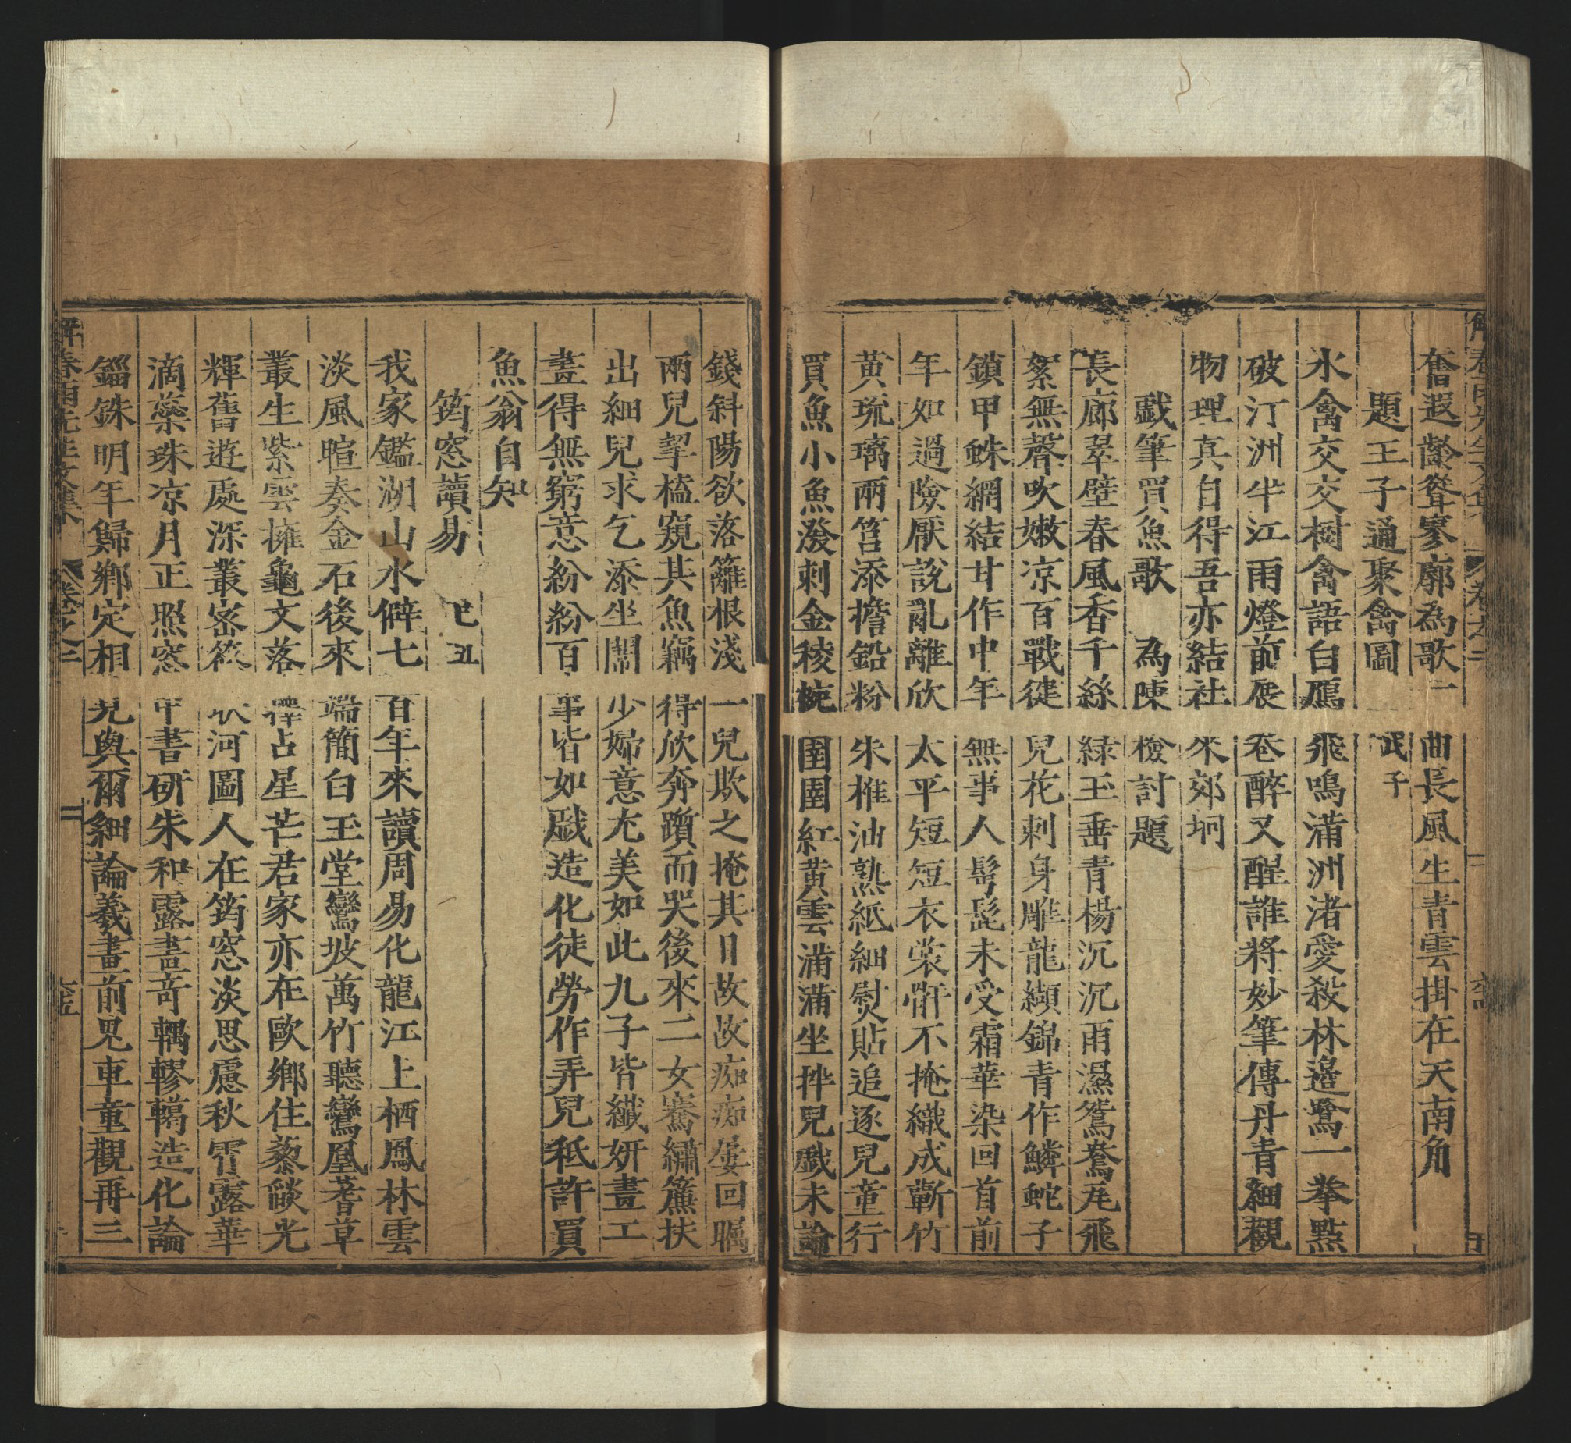 奮遐齡聳寥廓為歌一曲長風生青雲掛在天南角
題王子通聚禽圖 武子
水禽交交樹禽語白鴈飛鳴滿洲渚愛殺林邉鷺一拳點
破汀洲半江雨燈前展卷醉又醒誰將妙筆傳丹青細觀
物理真自得吾亦結社朱郊坰
戱筆買魚歌 為陳檢討題
長廊翠壁春風香千絲緑玉垂青楊沉沉雨濕鴛鴦飛
絮無聲吹嫩凉百戰徤兒花刺身雕龍纈錦青作鱗蛇矛
鎖甲蛛網結甘作中年無事人髩髭未受霜華染回首前
年如過險厭說亂離欣太平短短衣裳骭不掩織成蘄竹
黄琉璃兩筥添擔鉛粉朱椎油熟紙細熨貼追逐兒童行
買魚小魚潑刺金稜梭團團紅黄雲滿滿坐拌兒戱未論
錢斜陽欲落籬根淺一兒欺之掩其目故故痴痴婁回矚
兩兒挈榼窺其魚竊得欣奔躓而哭後來二女騫繡簾扶
出細兒求乞添坐闘少婦意尤美如此九子皆纖妍畫工
畫得無窮意紛紛百事皆如戱造化徒勞作弄兒秖許買
魚翁自知
筠窓讀易 己丑
我家鑑湖山水僻七百年來讀周易化龍江上栖鳳林雲
淡風暄奏金石後來端簡白玉堂鸞坡萬竹聽鸞凰蓍草
叢生紫雲擁龜文落澤占星芒君家亦在歐鄉住藜燄光
輝舊遊處深叢密筱河圖人在筠窓淡思慮秋霄露華
滴藥珠凉月正照窓中書研朱和露畫竒耦轇轕造化論
錙銖明年歸鄉定相見與爾細論羲畫前見重童觀再三